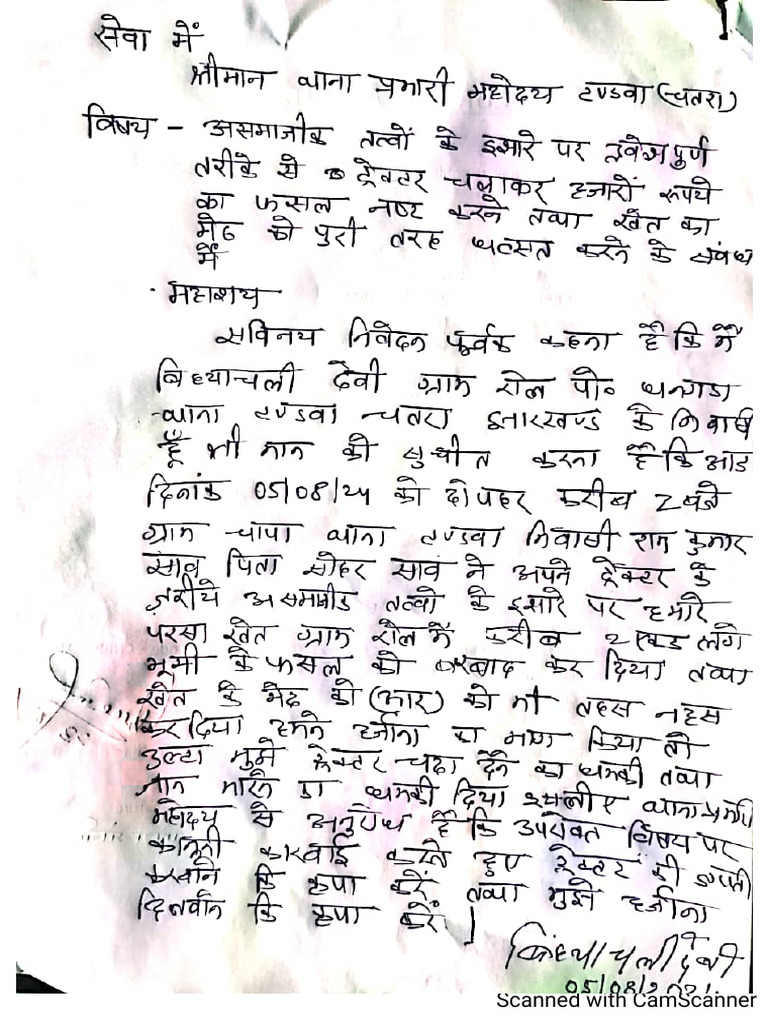 सेवा में
श्रीमान थाना प्रभारी महोदय टण्डवा (चतरा)
विषय - असमाजीक तत्वों के इसारे पर द्वेशपुर्ण
तरीके से ट्रेक्टर चलाकर हजारों रूपये
का फसल नष्ट करने तथा खेत का
मेढ को पुरी तरह ध्वस्त करने के संबंध
में
महाशय
सविनय निवेदन पूर्वक कहना है कि मैं
बिंध्याचली देवी ग्राम सेल पो० धनगडा
थाना टण्डवा चतरा झारखण्ड के निवासी
हूँ श्री मान को सुचीत करना है कि आज
दिनांक 05/08/24 को दोपहर करीब 2 बजे
ग्राम चापा थाना टण्डवा निवासी राम कुमार
साव पिता सोहर साव ने अपने ट्रेक्टर के
ज़रीये असमाजीक तत्वों के इसारे पर हमारे
परसा खेत ग्राम सेल में करीब 2 एकड लगे
भूमी के फसल को बरबाद कर दिया तथा
खेत के मेढ को (आर) को भी तहस नहस
कर दिया हमने हर्जाना का मांग किया तो
उल्टा मुझे ट्रेक्टर चढा देने का धमकी तथा
जान मारने का धमकी दिया इसलीए थाना प्रभारी
महोदय से अनुरोध है कि उपरोक्त विषय पर
कानुनी कारवाई करते हुए ट्रेक्टर की जप्ती
करवाने कि कृपा करें तथा मुझे हर्जाना
दिलवाने कि कृपा करें।
बिंध्याचली देवी
05/08/2024
Scanned with CamScanner